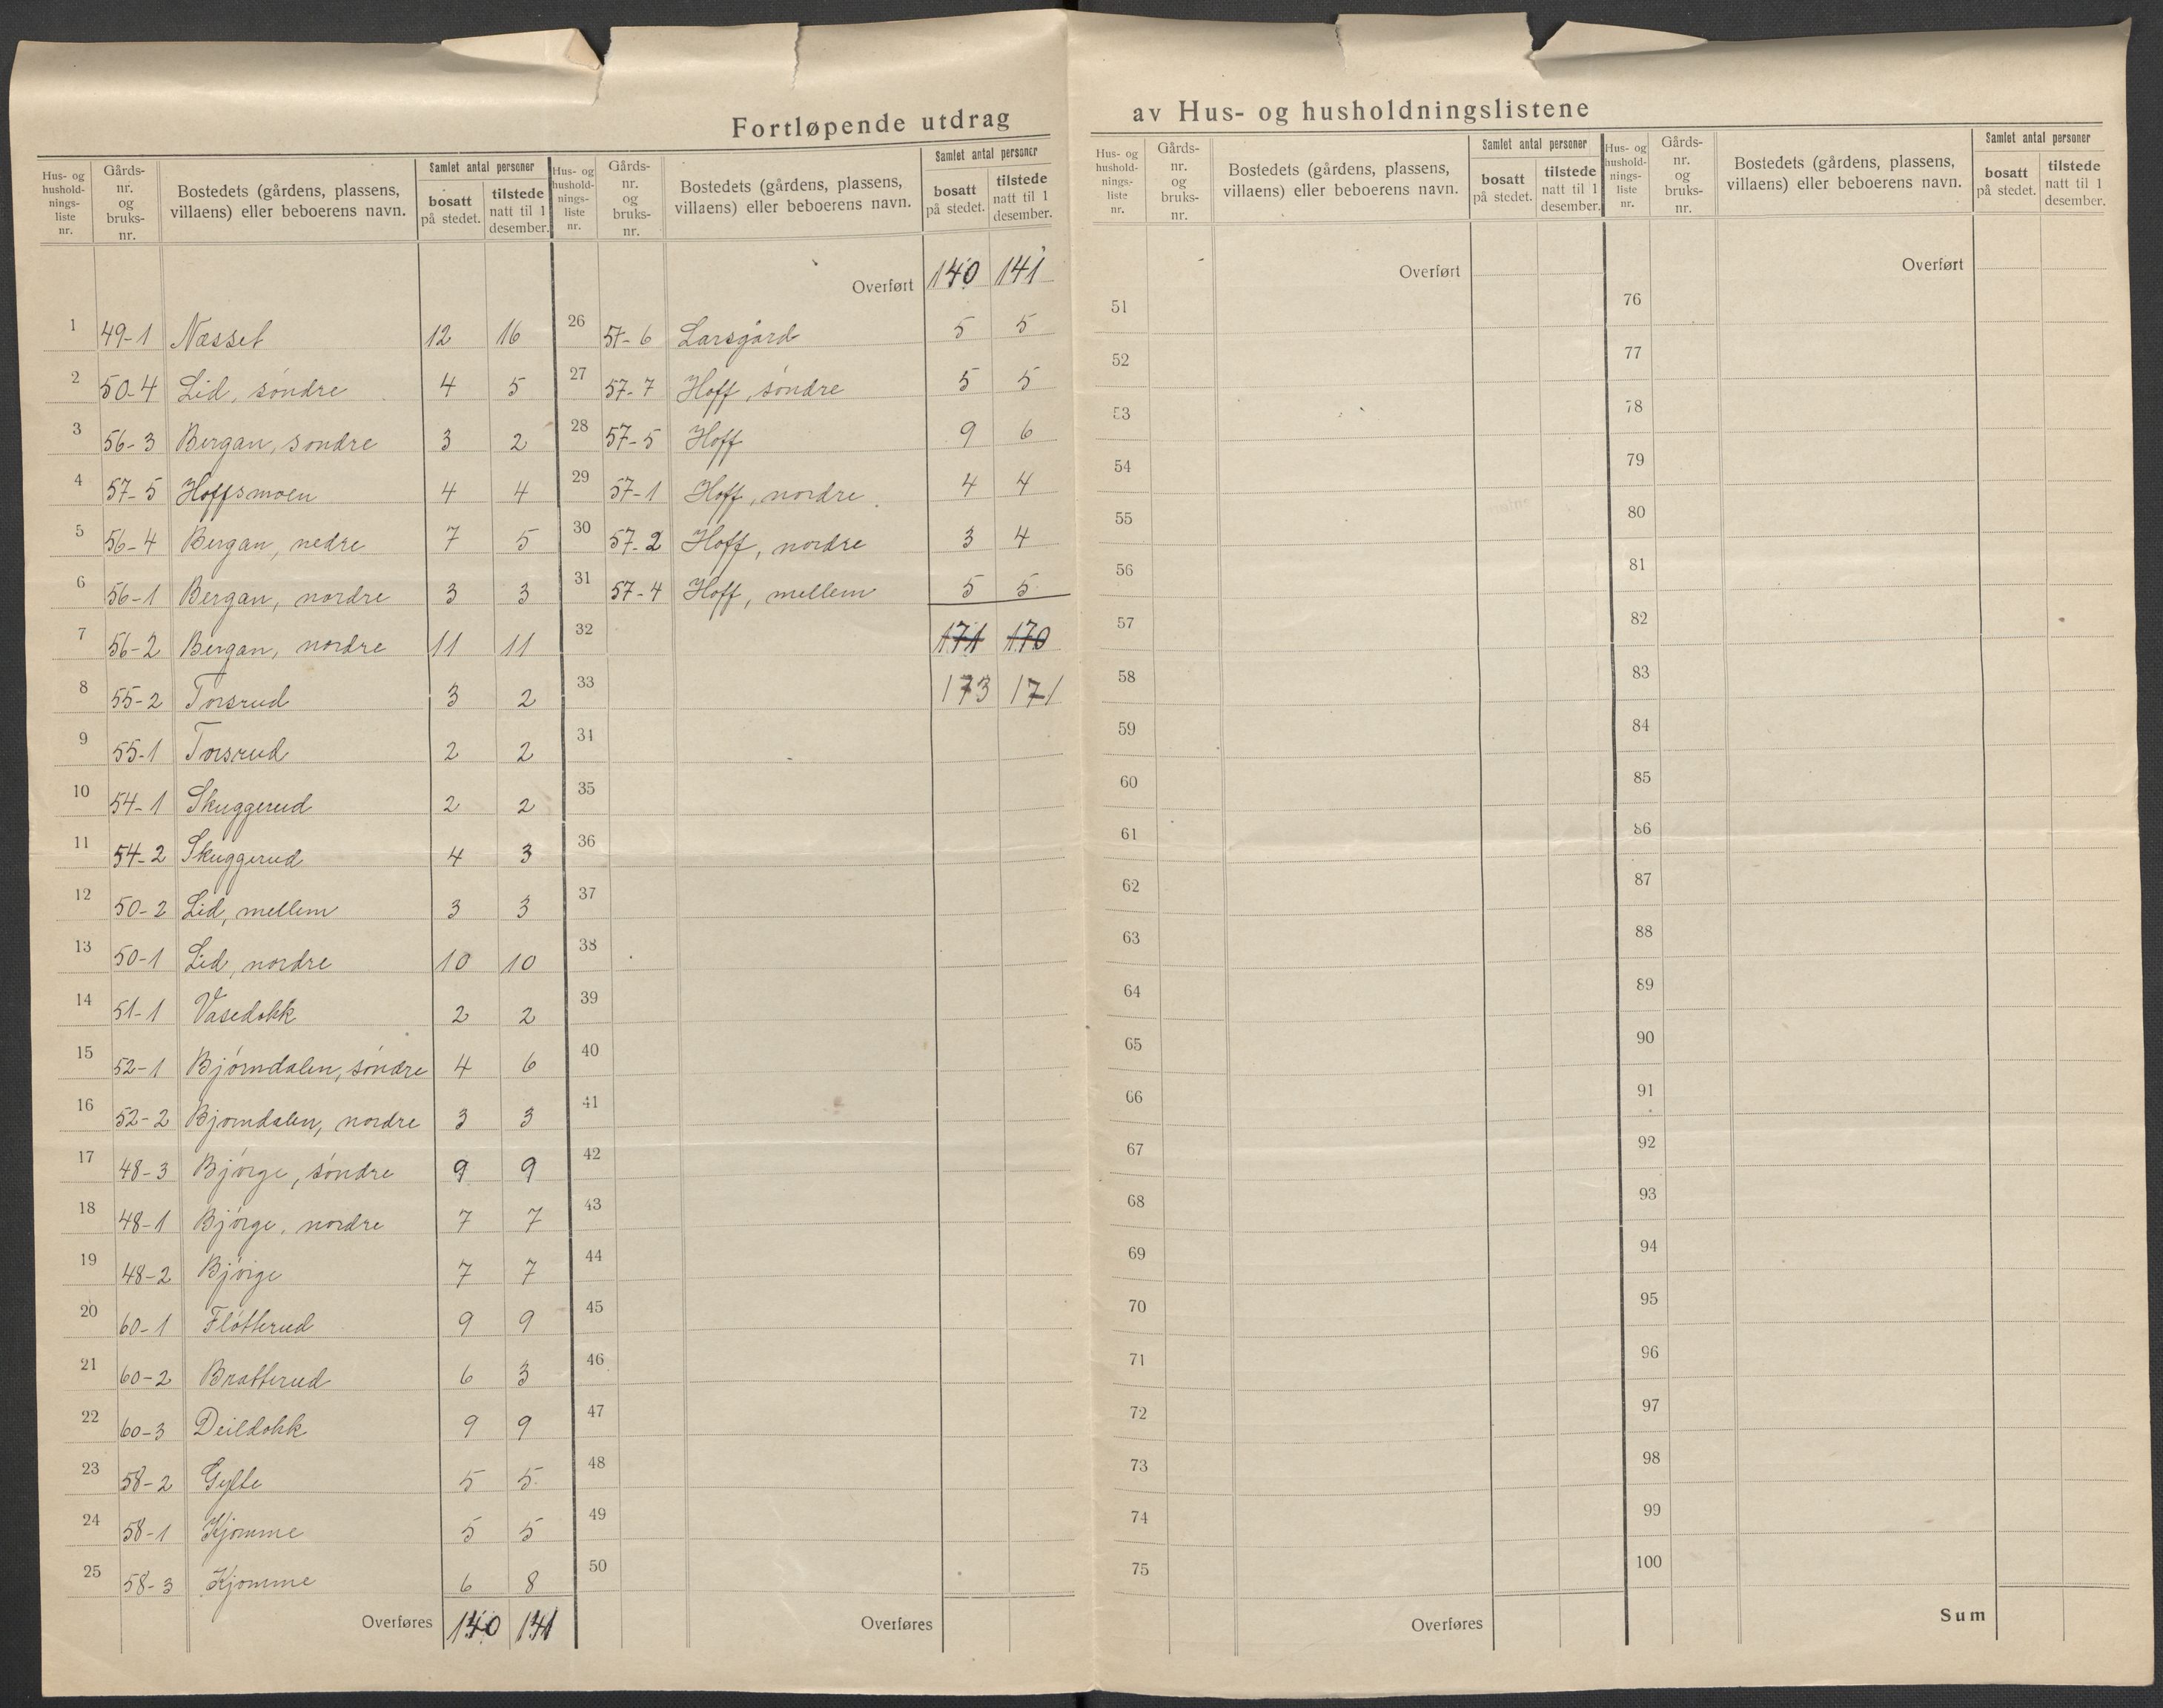 Fortløpende utdrag av Hus- og husholdningslistene
Hus- og hushold-nings-liste nr. Gårds-nr. og bruks-nr. Bostedets (gårdens, plassens, villaens) eller beboerens navn. Samlet antal personer bosatt på stedet. tilstede natt til 1 desember.
1 49-1 Næsset 12 16
2 50-4 Lid, søndre 4 5
3 56-3 Bergan, søndre 3 2
4 57-5 Hoffsmoen 4 4
5 56-4 Bergan, nedre 7 5
6 56-1 Bergan, nordre 3 3
7 56-2 Bergan, nordre 11 11
8 55-2 Torsrud 3 2
9 55-1 Torsrud 2 2
10 54-1 Skuggerud 2 2
11 54-2 Skuggerud 4 3
12 50-2 Lid, mellem 3 3
13 50-1 Lid, nordre 10 10
14 51-1 Vasedokk 2 2
15 52-1 Bjørndalen, søndre 4 6
16 52-2 Bjorndalen, nordre 3 3
17 48-3 Bjørge, søndre 9 9
18 48-1 Bjørge, nordre 7 7
19 48-2 Bjørge 7 7
20 60-1 Fløtterud 9 9
21 60-2 Bratterud 6 3
22 60-3 Deildokk 9 9
23 58-2 Gylte 5 5
24 58-1 Kjomme 5 5
25 58-3 Kjomme 6 8
Overføres 140 141
Hus- og hushold-nings-liste nr. Gårds-nr. og bruks-nr. Bostedets (gårdens, plassens, villaens) eller beboerens navn. Samlet antal personer bosatt på stedet. tilstede natt til 1 desember.
Overført 140 141
26 57-6 Larsgård 5 5
27 57-7 Hoff, søndre 5 5
28 57-5 Hoff 9 6
29 57-1 Hoff, nordre 4 4
30 57-2 Hoff, nordre 3 4
31 57-4 Hoff, mellem 5 5
32 171 170
33 173 171
34
35
36
37
38
39
40
41
42
43
44
45
46
47
48
49
50
Overføres
Hus- og hushold-nings-liste nr. Gårds-nr. og bruks-nr. Bostedets (gårdens, plassens, villaens) eller beboerens navn. Samlet antal personer bosatt på stedet. tilstede natt til 1 desember.
Overført
51
52
53
54
55
56
57
58
59
60
61
62
63
64
65
66
67
68
69
70
71
72
73
74
75
Overføres
Hus- og hushold-nings-liste nr. Gårds-nr. og bruks-nr. Bostedets (gårdens, plassens, villaens) eller beboerens navn. Samlet antal personer bosatt på stedet. tilstede natt til 1 desember.
Overført
76
77
78
79
80
81
82
83
84
85
86
87
88
89
90
91
92
93
94
95
96
97
98
99
100
Sum